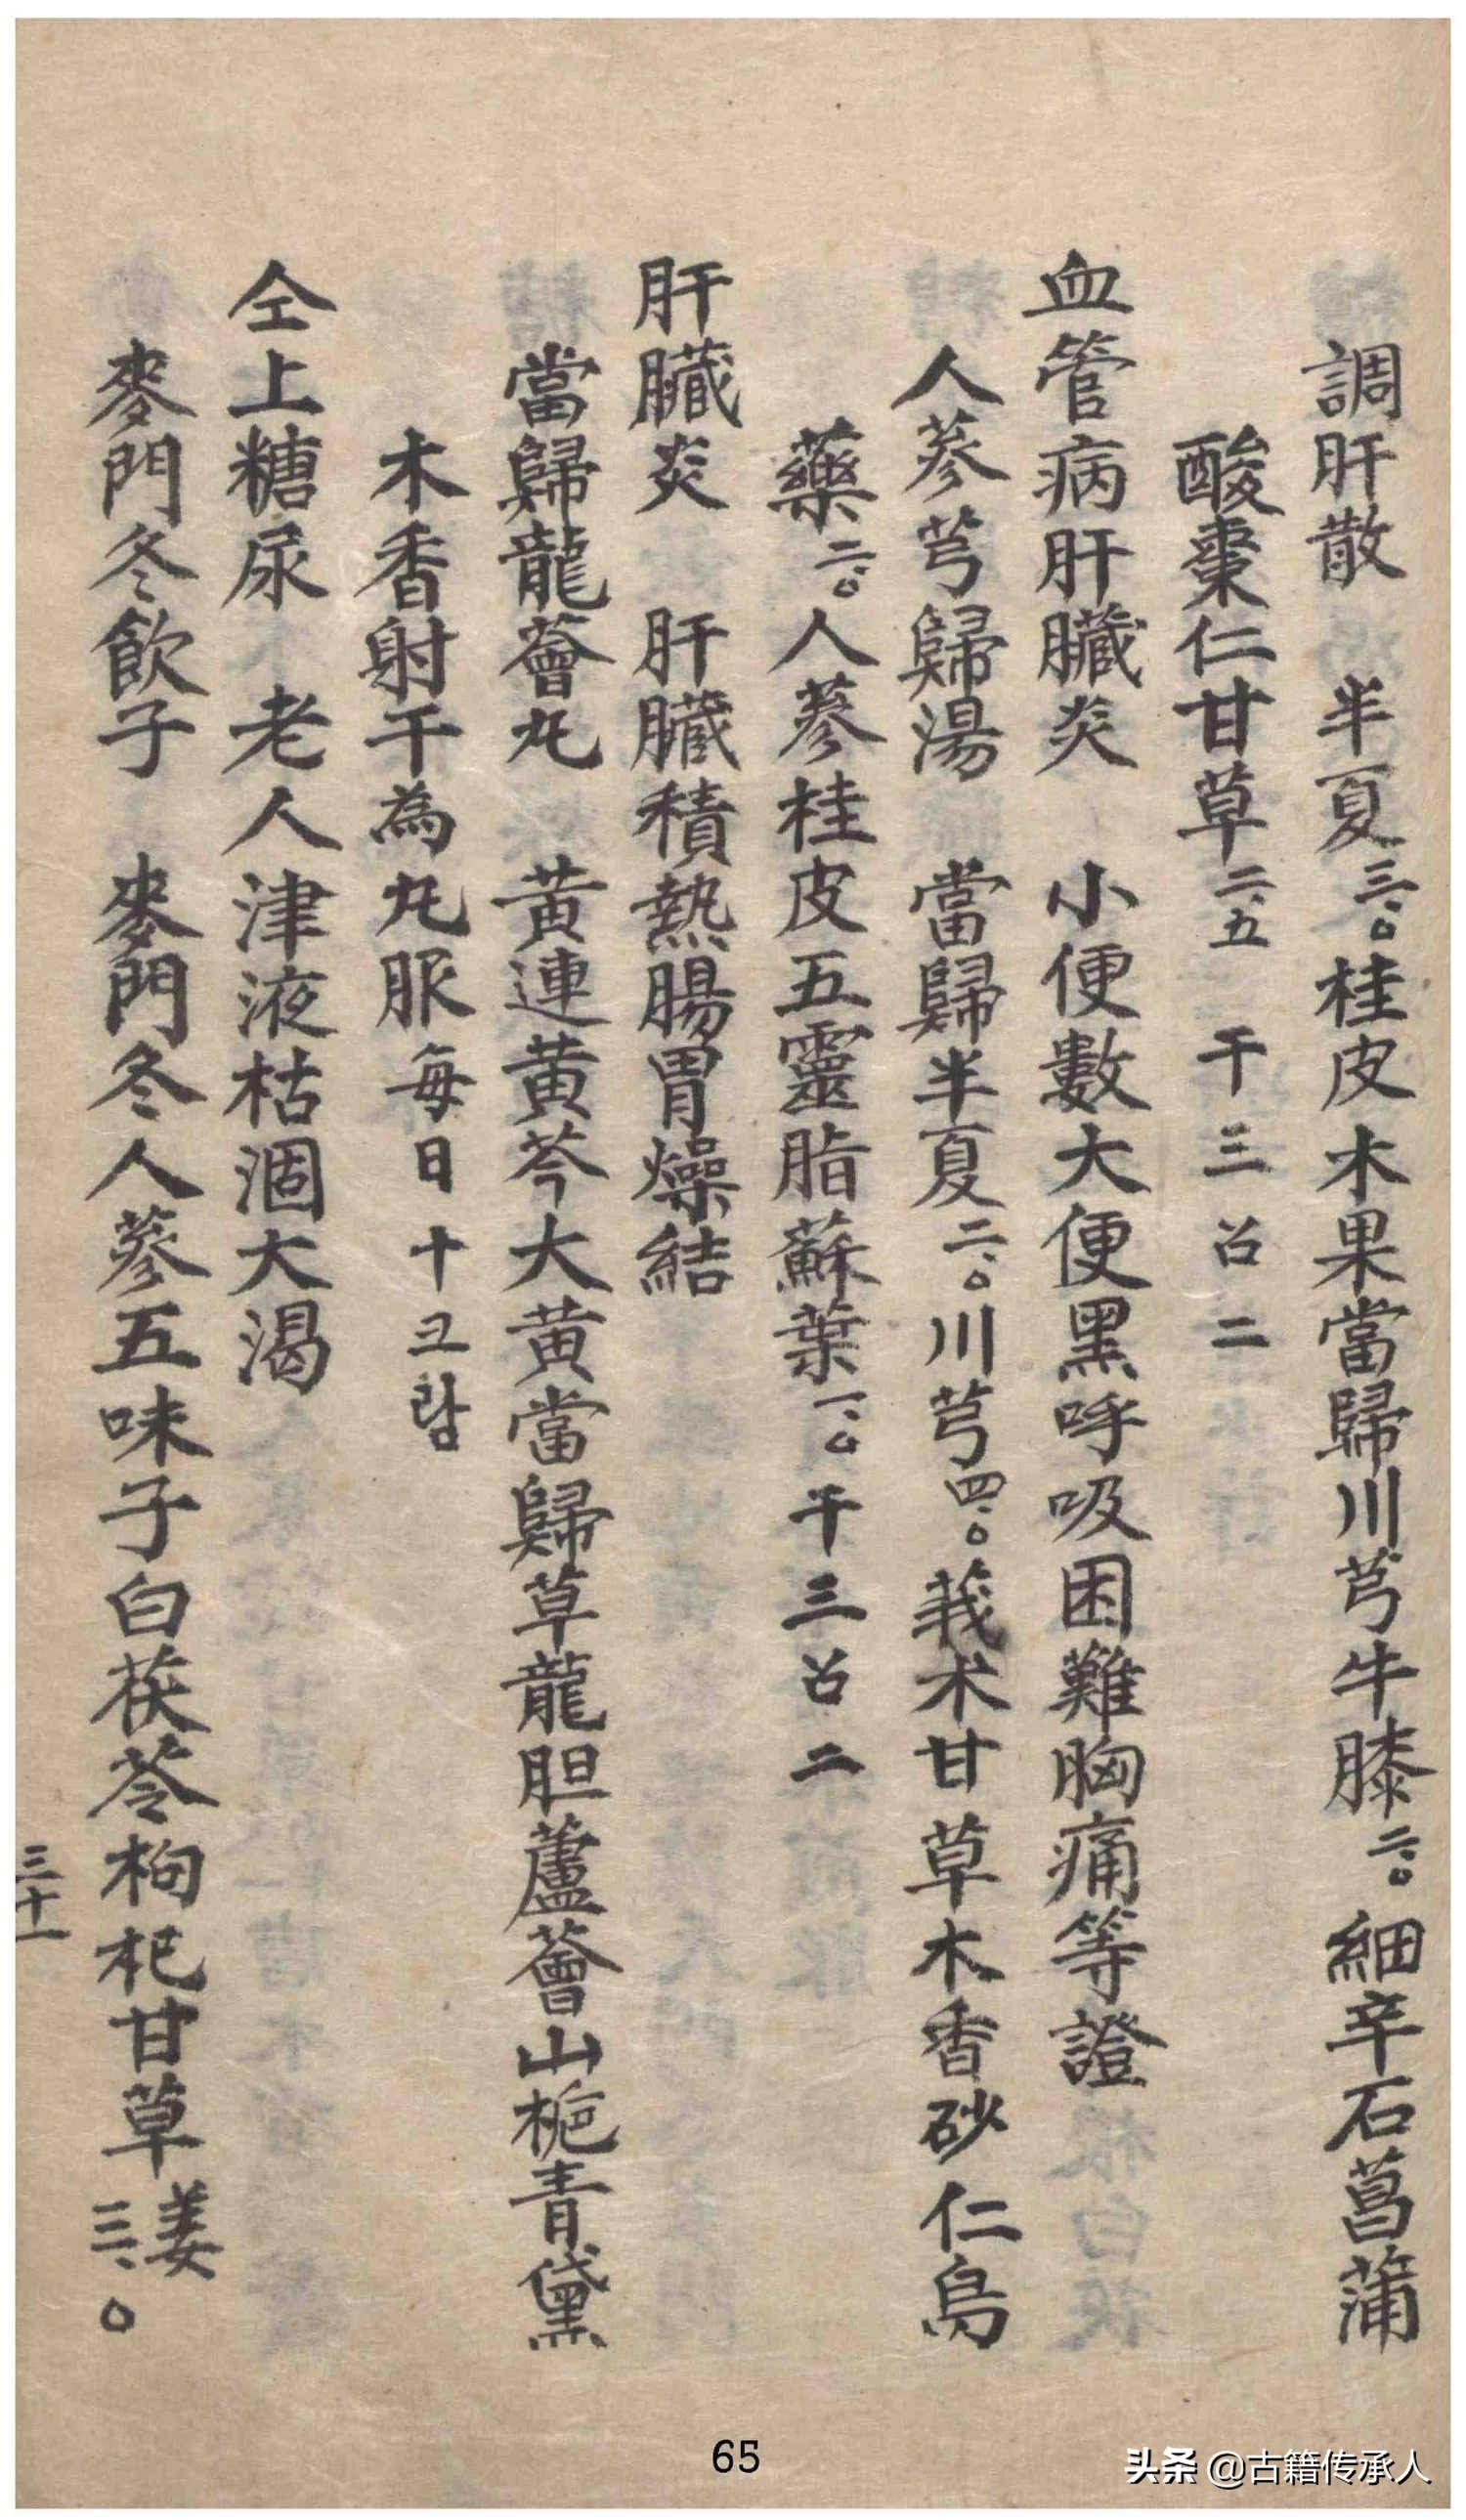 調肝散　半夏三、〇桂皮木果當歸川芎牛膝二、〇細辛石菖蒲
酸棗仁甘草二、五　干三召二
血管病肝臟炎　小便數大便黑呼吸困難胸痛等證
人蔘芎歸湯　當歸半夏二、〇川芎四、〇莪朮甘草木香砂仁烏
藥二、〇人蔘桂皮五靈脂蘇葉一、〇干三召二
肝臟炎　肝臟積熱腸胃燥結
當歸龍薈丸　黃連黃芩大黃當歸草龍胆蘆薈山梔青黛
木香射干為丸服每日十그람
仝上糖尿　老人津液枯涸大渴
麥門冬飲子　麥門冬人蔘五味子白茯苓枸杞甘草姜三、〇
三十一
65
头条 @古籍传承人